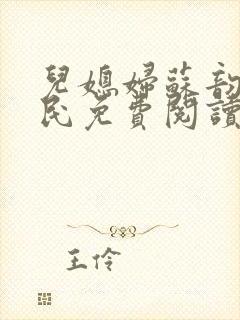 兒媳婦蘇韵
民免費閱讀
王伶